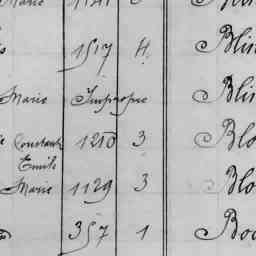 Marie
1517 H. Blin
Marie Impropre Blin
Constant 1210 3 Blo
Emile
Marie 1129 3 Blo
357 1 Boc